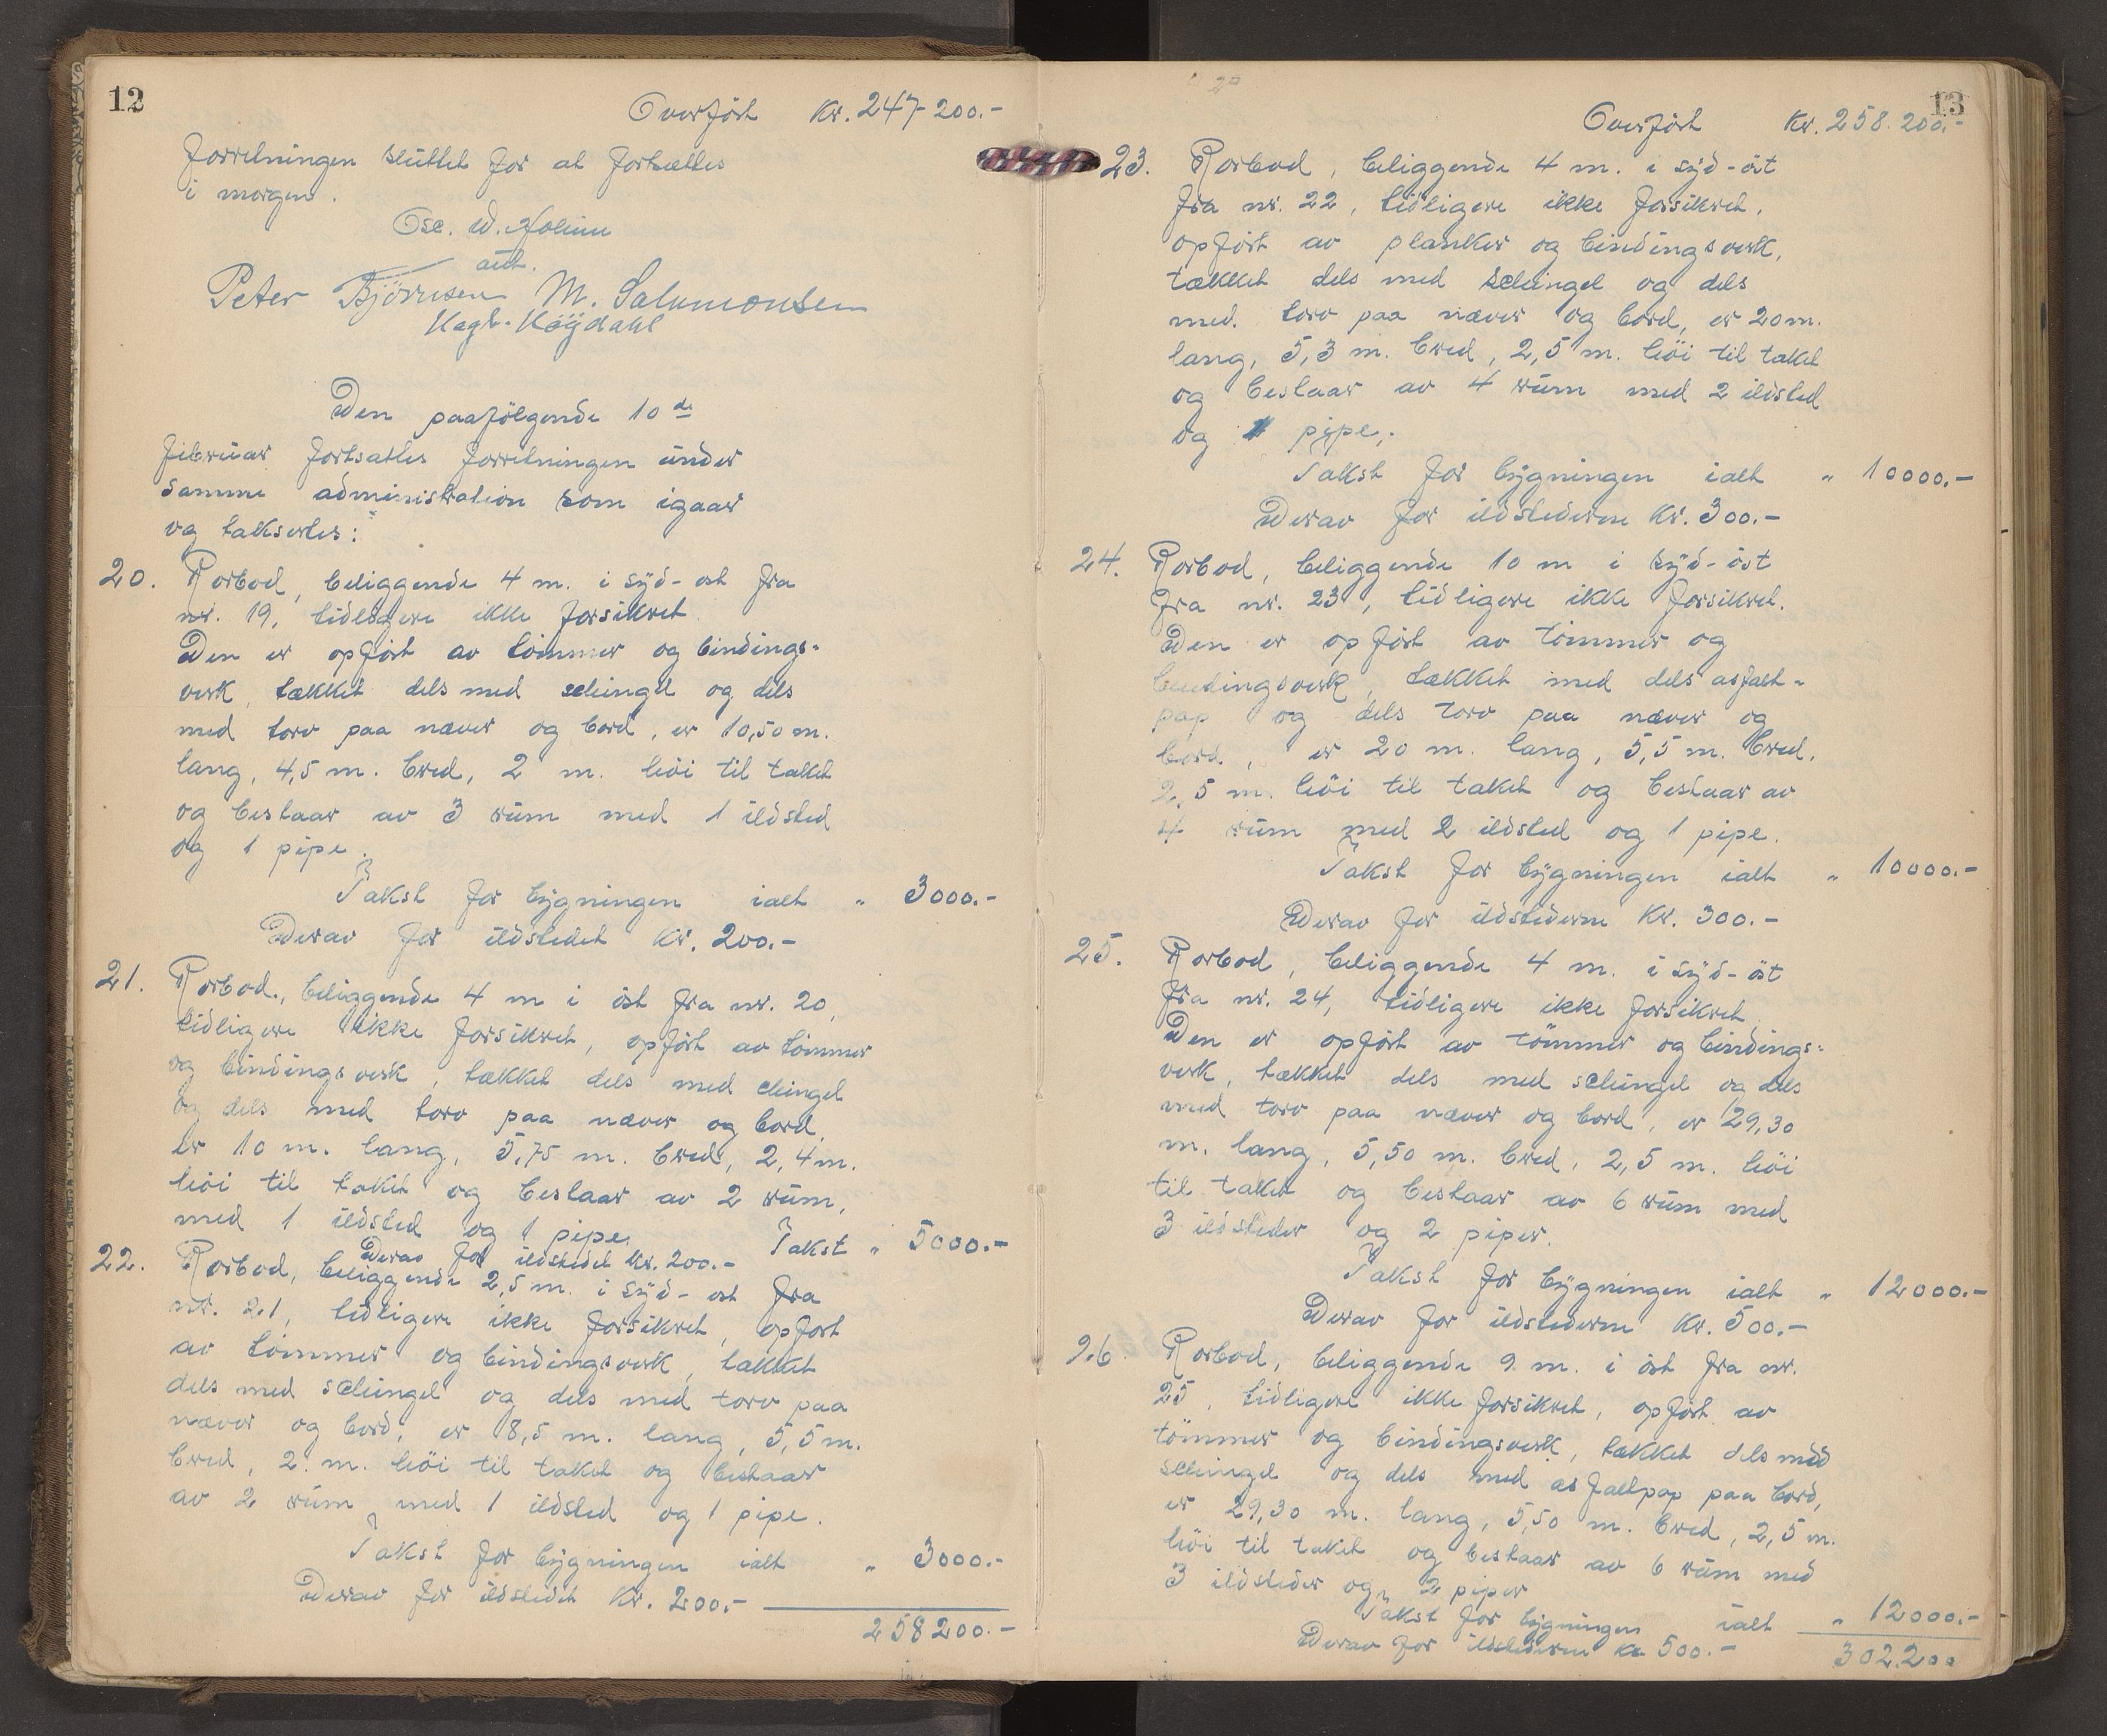 12
Overfört Kr. 247 200.-
Forretningen sluttet for at fortsættes
i morgen.
Osc. W.
aut.
Peter Björnsen M. Salomonsen
Hagb. Höydahl
Den paafölgende 10de
februar fortsattes forretningen under
samme administration som igaar
og taksertes:
20. Rorbod, beliggende 4 m. i syd-ost fra
nr. 19, tidligere ikke forsikret.
Den er opfört av tömmer og bindings-
verk, tækket dels med schingel og dels
med torv paa næver og bord, er 10,50 m.
lang, 4,5 m. bred, 2 m. höi til taket
og bestaar av 3 rum med 1 ildsted
og 1 pipe.
Takst for bygningen ialt " 3000.-
Derav for ildstedet Kr. 200.-
21. Rorbod, beliggende 4 m i öst fra nr. 20,
tidligere ikke forsikret, opfört av tömmer
og bindingsverk, tækket dels med chingel
og dels med torv paa næver og bord,
er 10 m. lang, 5,75 m. bred, 2,4 m.
höi til taket og bestaar av 2 rum,
med 1 ildsted og 1 pipe. Takst " 5000.-
Derav for ildstedet Kr. 200.-
22. Rorbod, beliggende 2,5 m. i syd-ost fra
nr. 21, tidligere ikke forsikret, opfört
av tömmer og bindingsverk, tækket
dels med schingel og dels med torv paa
næver og bord, er 8,5 m. lang, 5,5 m.
bred, 2 m. höi til taket og bestaar
av 2 rum med 1 ildsted og 1 pipe.
Takst for bygningen ialt " 3000.-
Derav for ildstedet Kr. 200.-
258 200.-
13
Overfört Kr. 258.200.-
23. Rorbod, beliggende 4 m. i syd-öst
fra nr. 22, tidligere ikke forsikret,
opfört av planker og bindingsverk,
tækket dels med schingel og dels
med torv paa næver og bord, er 20 m.
lang, 5,3 m. bred, 2,5 m. höi til taket
og bestaar av 4 rum med 2 ildsted
og 1 pipe.
Takst for bygningen ialt " 10000.-
Derav for ildstederne Kr. 300.-
24. Rorbod, beliggende 10 m i syd-öst
fra nr. 23, tidligere ikke forsikret.
Den er opfört av tömmer og
bindingsverk, tækket med dels asfalt-
pap og dels torv paa næver og
bord, er 20 m. lang, 5,5 m. bred,
2,5 m. höi til taket og bestaar av
4 rum med 2 ildsted og 1 pipe.
Takst for bygningen ialt " 10000.-
Derav for ildstederne Kr. 300.-
25. Rorbod, beliggende 4 m. i syd-öst
fra nr. 24, tidligere ikke forsikret.
Den er opfört av tömmer og bindings-
verk, tækket dels med schingel og dels
med torv paa næver og bord, er 29,30
m. lang, 5,50 m. bred, 2,5 m. höi
til taket og bestaar av 6 rum med
3 ildsteder og 2 piper.
Takst for bygningen ialt " 12000.-
Derav for ildstederne Kr. 500.-
26. Rorbod, beliggende 9 m. i öst fra nr.
25, tidligere ikke forsikret, opfört av
tömmer og bindingsverk, tækket dels med
schingel og dels med asfaltpap paa bord,
er 29,30 m. lang, 5,50 m. bred, 2,5 m.
höi til taket og bestaar av 6 rum med
3 ildsteder og 2 piper
Takst for bygningen ialt " 12000.-
Derav for ildstederne Kr 500.-
302.200